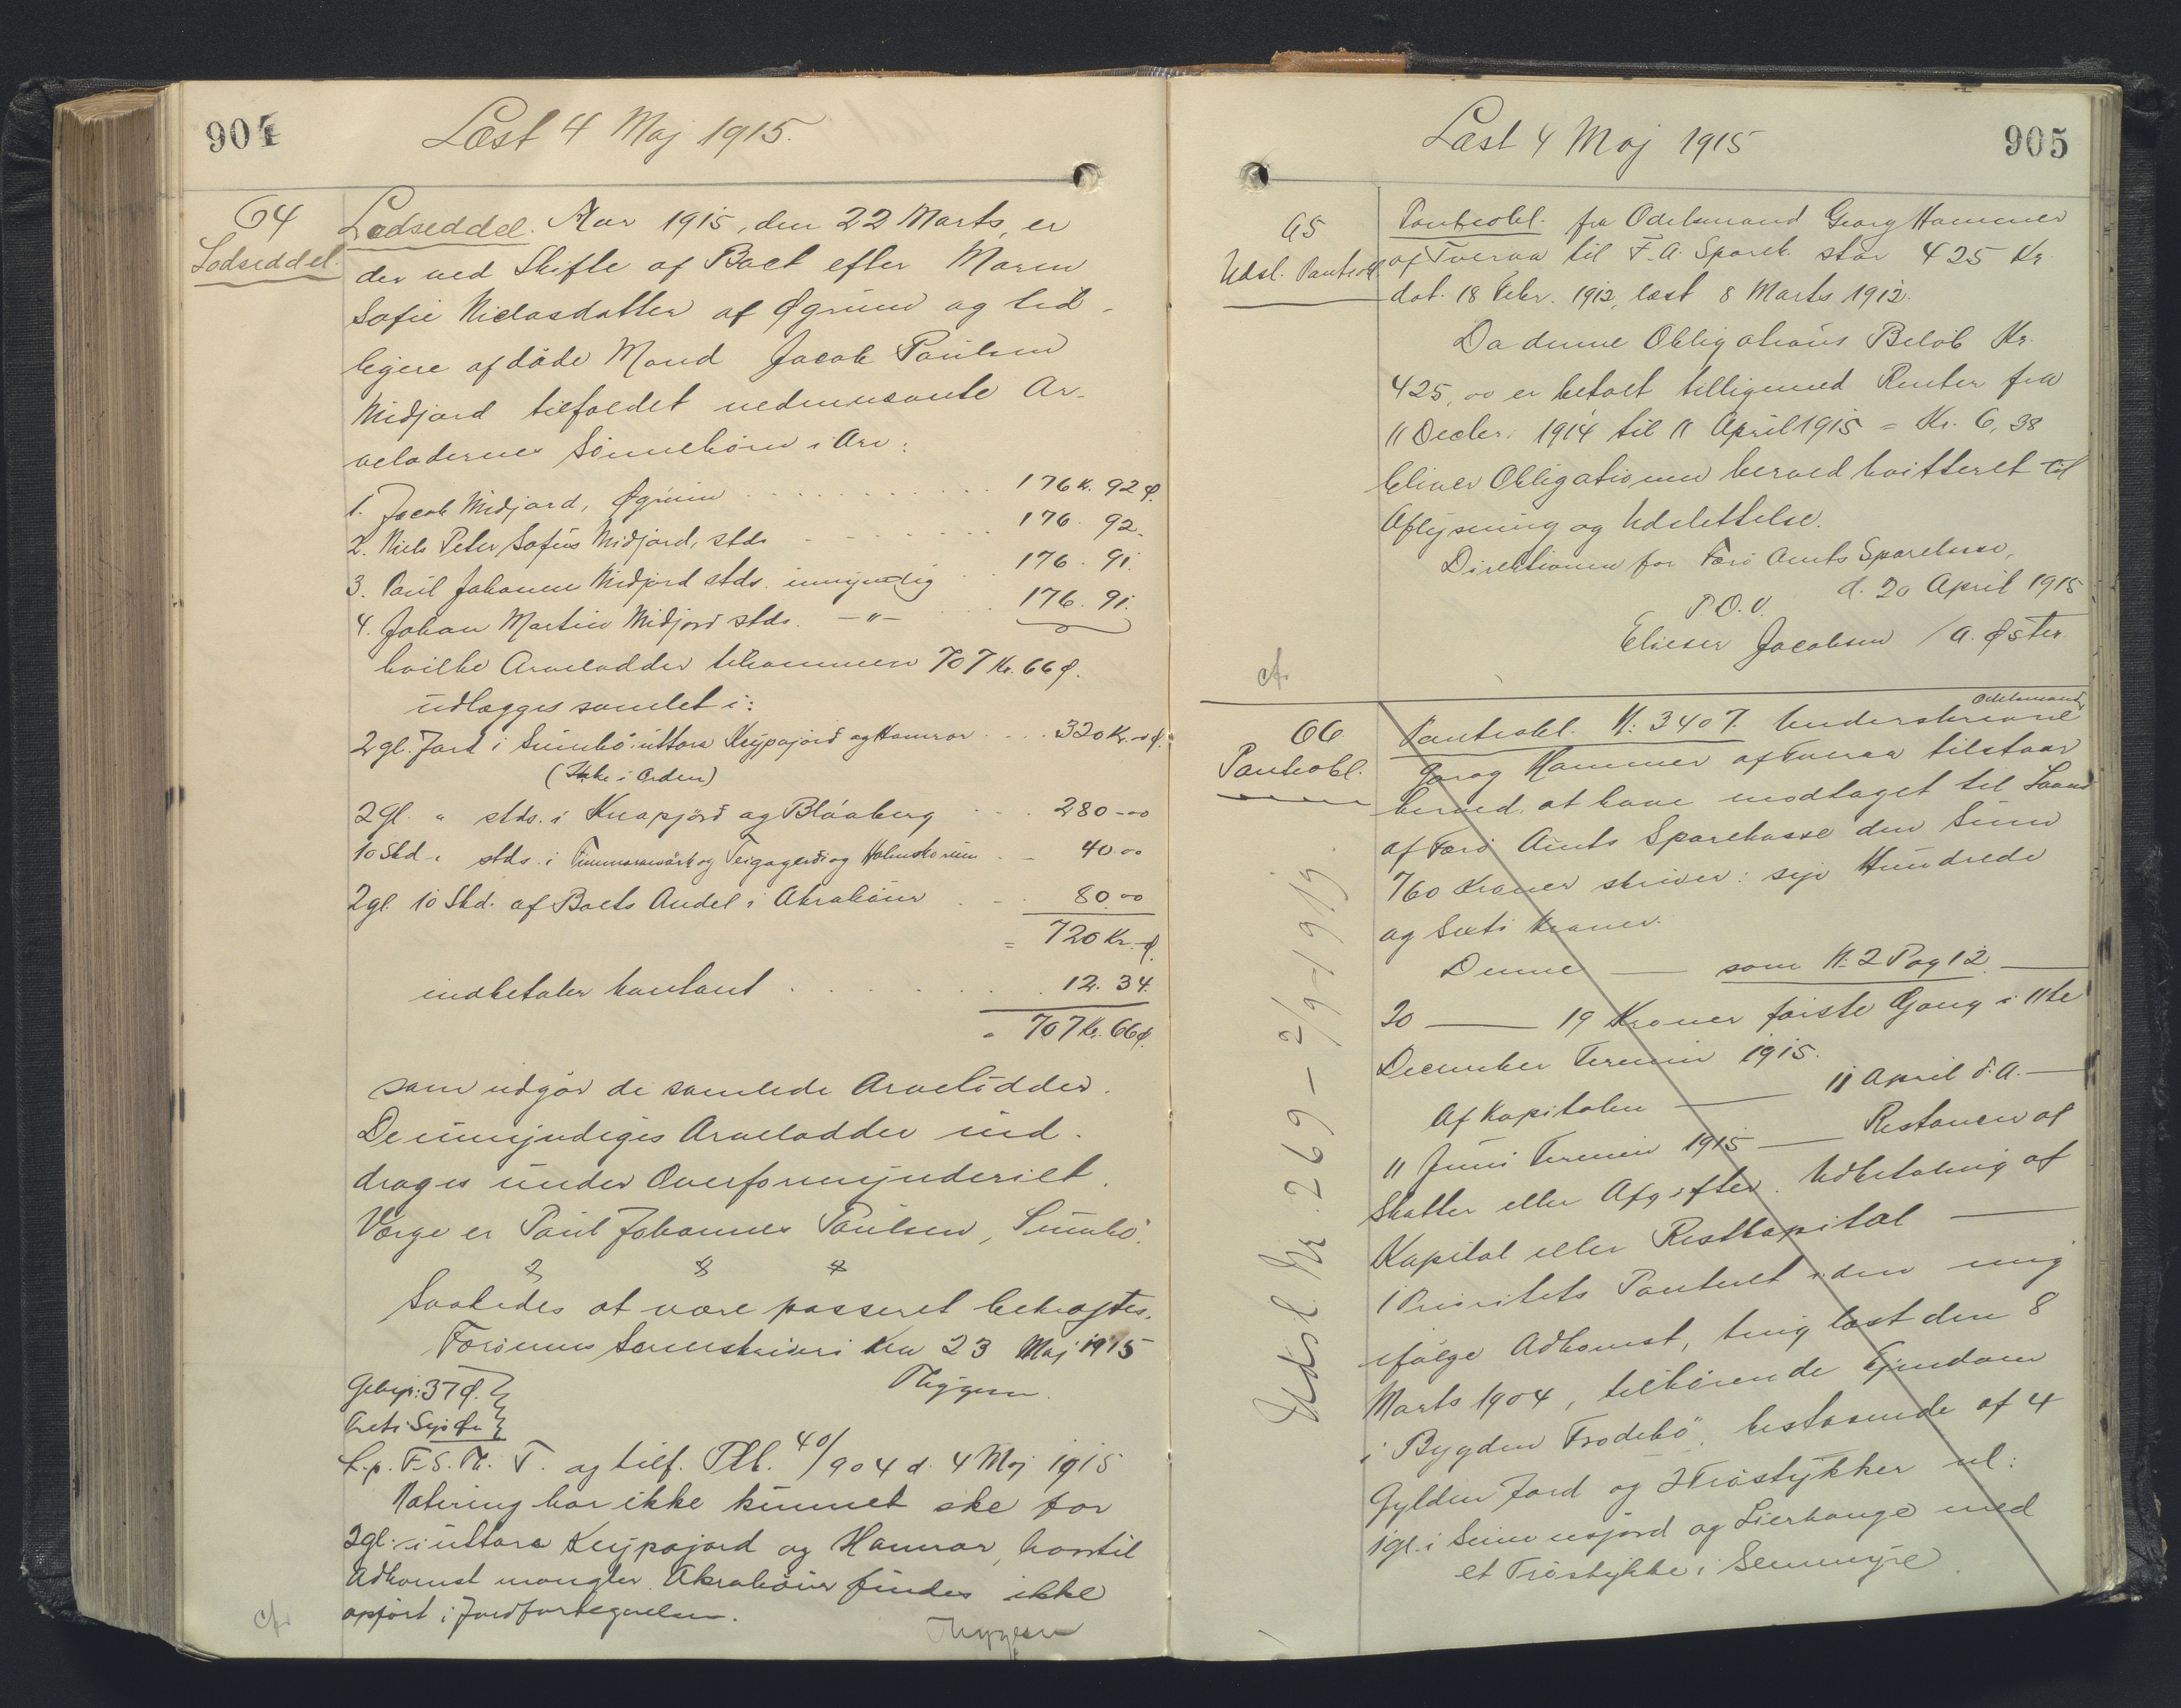 904
Læst 4 Maj 1915.
64
Lodseddel.
Lodseddel. Aar 1915, den 22 Marts, er
der ved Skifte af Boet efter Maren
Sofie Niclasdatter af Øgrum og tid-
ligere afdöde Mand Jacob Paulsen
Midjord tilfaldet nedennævnte Ar-
velodernes Sönnebörn i Arv:
1. Jacob Midjord, Øgrum . . . 176 K. 92 Ø.
2. Niels Peter Sofus Midjord, stds . . . 176. 92.
3. Paul Johannes Midjord stds. umyndig . . 176. 91.
4. Johan Martin Midjord stds. -"- . . . 176. 91.
hvilke Arvelodder tilsammen 707 Kr. 66 Ø.
udlægges samlet i:
2 gl. Jord i Sumbö uttara Keypajörd og Hamrar . . . 320 Kr. - Ø.
(Ikke i Orden)
2 gl. " stds. i Knapjörd og Bláaberg . . . 280-00
10 Skd. " stds. i og Teigagerdi og . . 40.00
2 gl. 10 Skd. af Boets Andel i Akrabönr . . . 80.00
= 720 Kr. - Ø.
indbetaler kontant . . . . . . 12. 34.
= 707 Kr. 66 Ø.
som udgör de samlede Arvelodder.
De umyndiges Arvelodder ind-
drages under Overformynderiet.
Værge er Paul Johannes Paulsen, Sumbö.
Saaledes at være passeret bekræftes.
Færöernes Sorenskriveri den 23 Maj 1915
Thygesen.
Gebyr: 37 Ø.
Treti Syv Øre
L. p. F. S. Th. T. og tilf. Ptb. 40/904 d. 4 Maj 1915
Notering har ikke kunnet ske for
2 gl. i uttara Keypajord og Hamrar, hvortil
Adkomst mangler. Akrabönr findes ikke
opfört i Jordfortegnelsen.
Thygesen
cf.
905
Læst 4 Maj 1915
65
Udsl. Pantobl.
Panteobl. fra Odelsmand Georg Hammer
af Tveraa til F. A. Spareb. stor 425 Kr.
dat. 18 Febr. 1912, læst 8 Marts 1912.
Da denne Obligations Belöb Kr.
425,00 er betalt tilligemed Renter fra
11 Decbr. 1914 til 11 April 1915 = Kr. 6,38
bliver Obligationen herved kvitteret til
Aflysning og Udslettelse.
Direktionen for Færö Amts Sparekasse,
d. 20 April 1915
P. D. V.
Elieser Jacobsen / A. Øster.
cf.
66
Pantobl.
Pantobl. N: 3407. Underskrevne Odelsmand
Georg Hammer af Tveraa tilstaar
herved, at have modtaget til Laans
af Færö Amts Sparekasse den Sum
760 Kroner skriver: syv Hundrede
og Sexti Kroner.
Denne — som N. 2 Pag 12 —
20 — 19 Kroner förste Gang i 11te
December Termin 1915.
Af Kapitalen — 11 April d. A. —
11 Juni Termin 1915 — Restancer af
Skatter eller Afgifter. Udbetaling af
Kapital eller Restkapital —
1 Prioritets Panteret i den mig
ifölge Adkomst, tinglæst den 8
Marts 1904, tilhörende Ejendom
i Bygden Frodebö, bestaaende af 4
Gylden Jord og 2 Tröstykker nl:
1 gl. i og Lierhauge med
et Tröstykke i
Udsl. Nr. 269 - 2/9-1919.